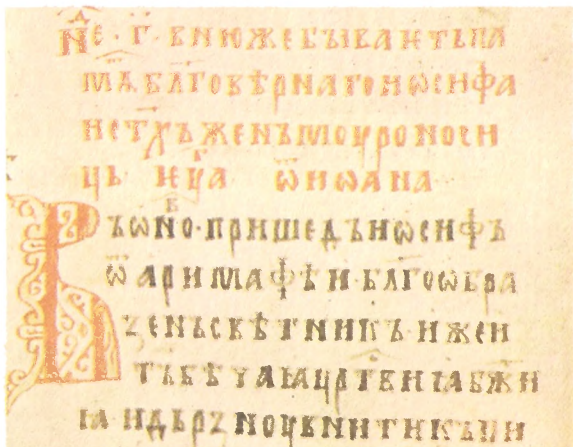 Нⷣе · г҃ · в нюже бываѥть па
мѧ̑ бл҃говѣрнаго иѡсифа
и ст҃хъ женъ мюроноси
ць ѥⷢ҇уа ѿ иѡана
Въ ѡⷩ҇о · пришедъ иѡсифъ
ѿ аримафѣи · бл҃гоѡбра
ꙁенъ свѣтникъ · иже и
тъ бѣ чаꙗ црⷭ҇твиꙗ б҃жи
ꙗ · и дьрꙁноувъ вниде къ пи